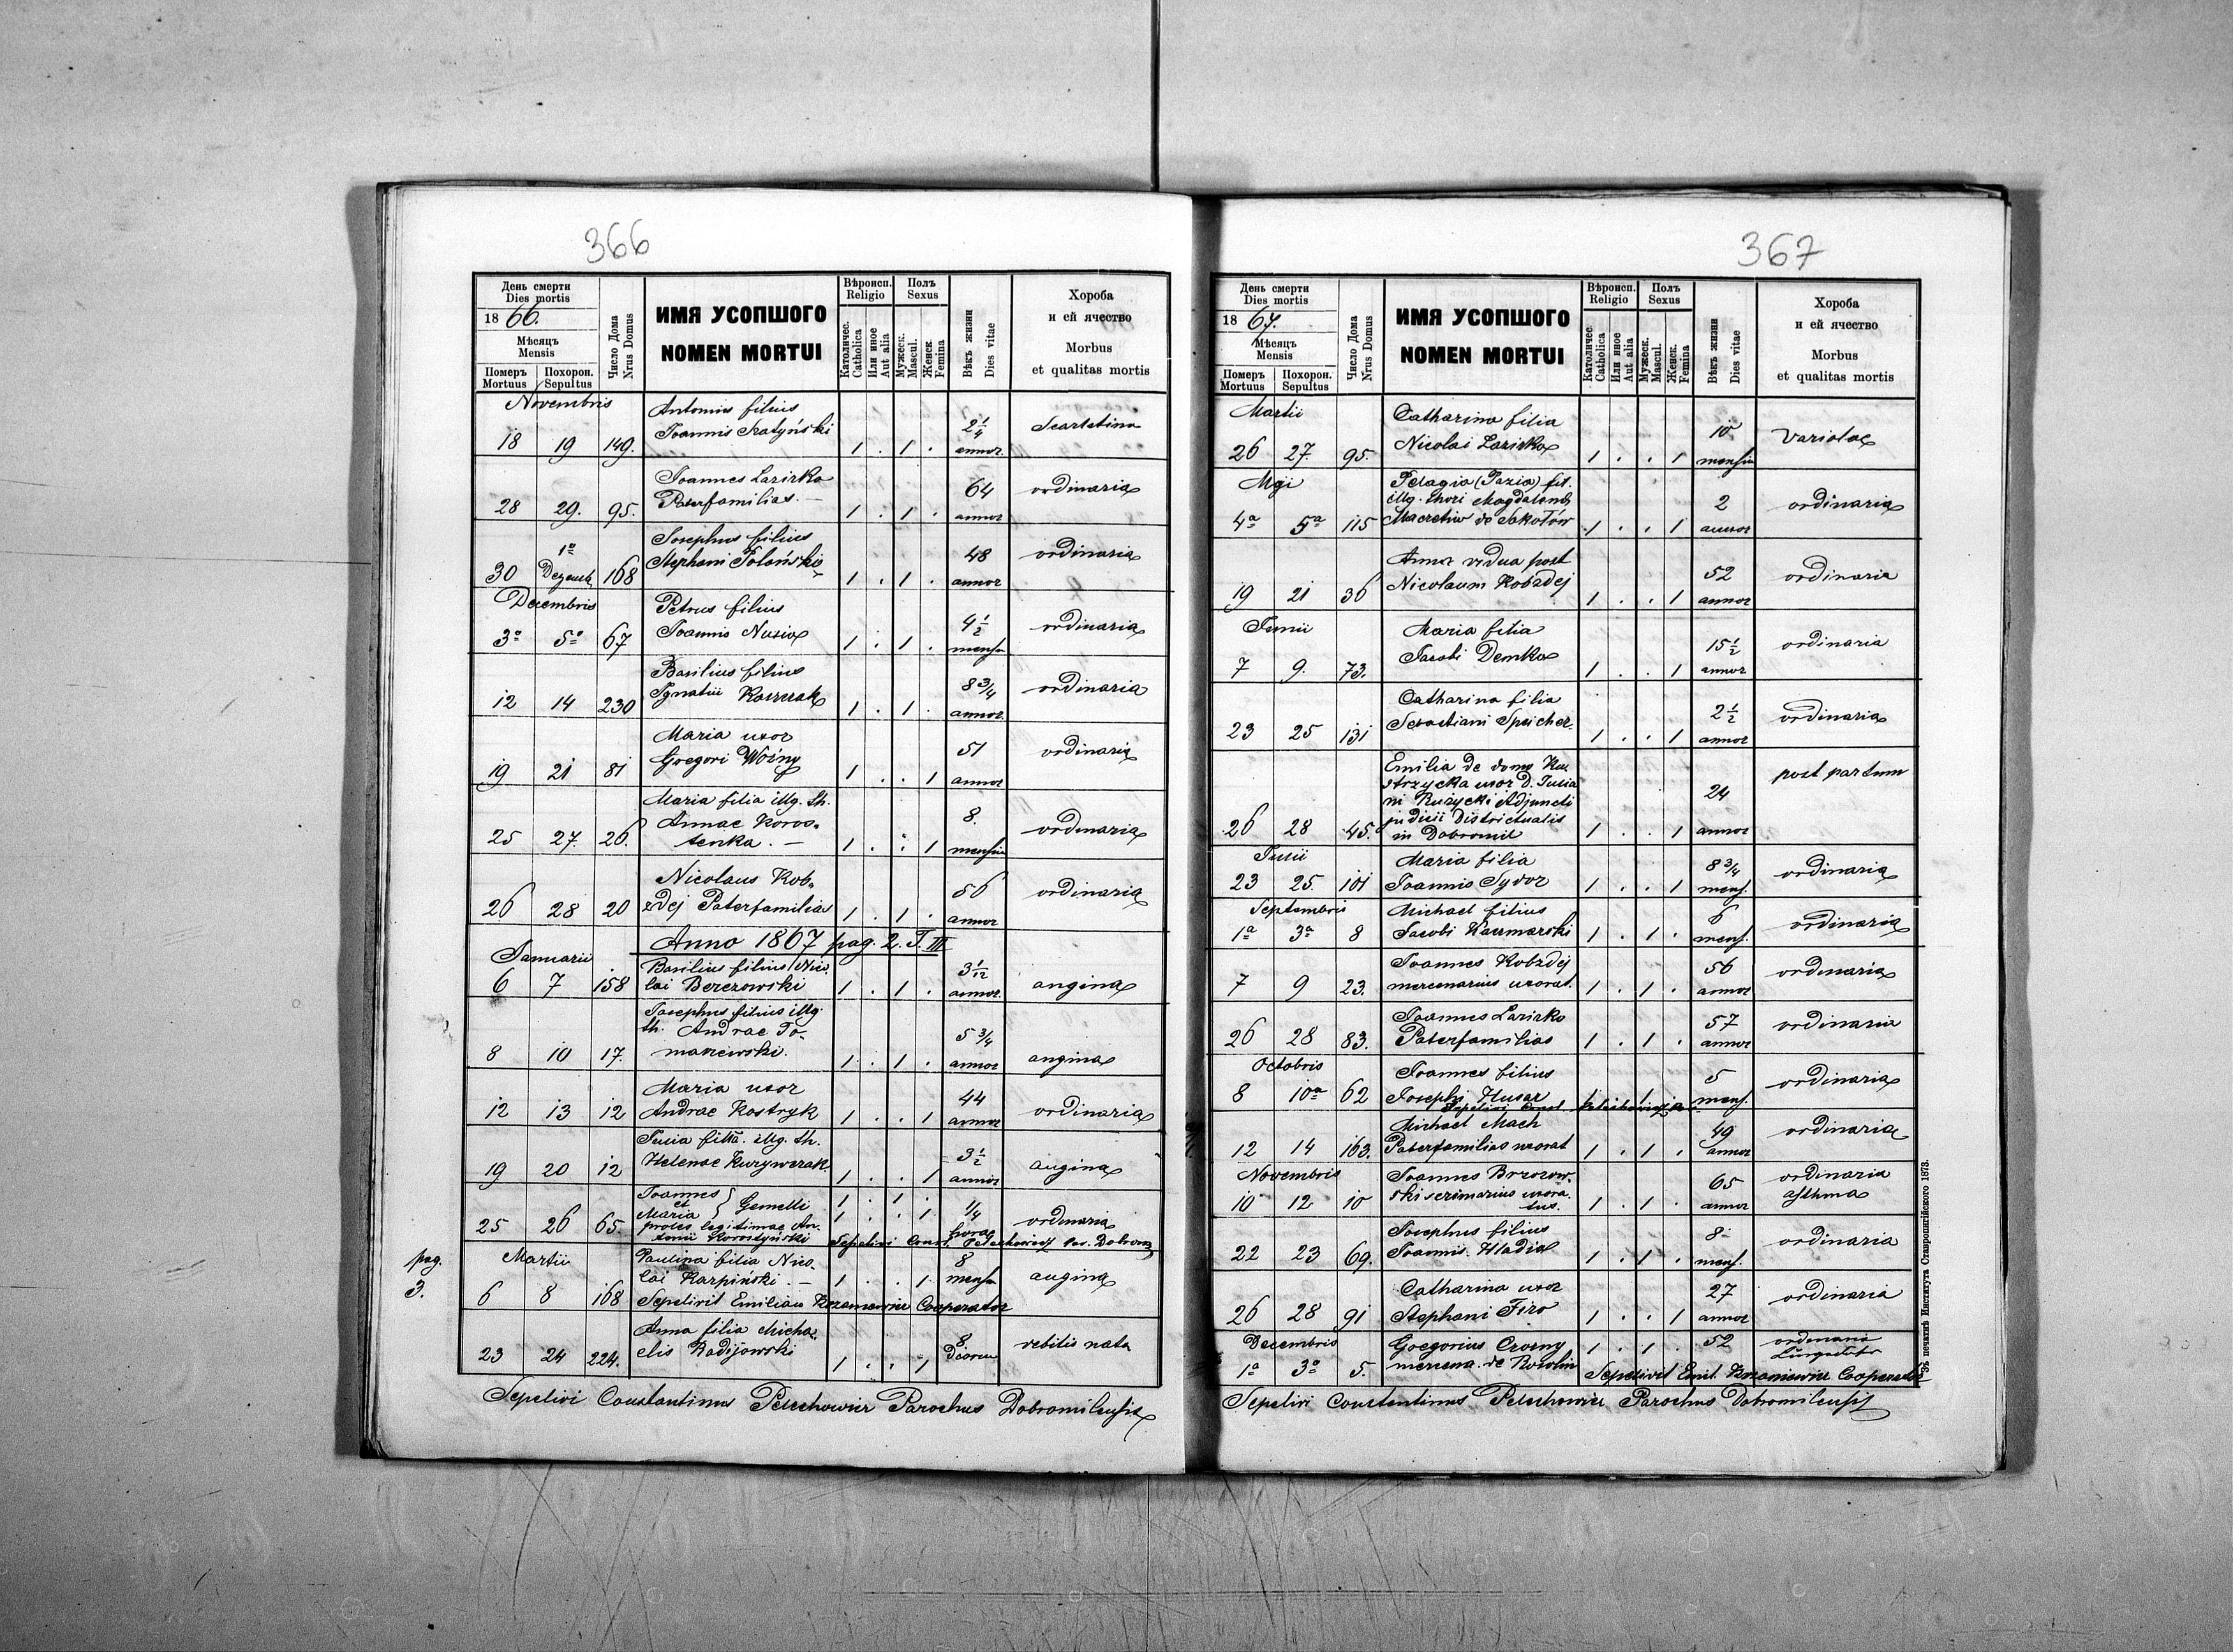 366
День смерти
Dies mortis
18 66.
Мѣсяцъ
Mensis
Померъ
Mortuus
Похорон.
Sepultus
Число Дома
Nrus Domus
ИМЯ УСОПШОГО
NOMEN MORTUI
Вѣроисп.
Religio
Католичес.
Catholica
Или иное
Aut alia
Полъ
Sexus
Мужеск.
Mascul.
Женск.
Femina
Вѣкъ жизни
Dies vitae
Хороба
и ей ячество
Morbus
et qualitas mortis
Novembris
Antonius filius
Joannis
18 19 149. 1 . 1 . 2 1/4 annor. Scarlatina
Joannes Lazirko
28 29. 95. Paterfamilias. — 1 . 1 . 64 annor ordinaria
Josephus filius
30 1a Dezemb. 168 Stephani Polański 1 . 1 . 48 annor ordinaria
Decembris
Petrus filius
3a 5a 67 Joannis Nusio 1 . 1 . 4 1/2 mensu ordinaria
Basilius filius
12 14 230 Ignatii 1 . 1 . 8 3/4 annor. ordinaria
Maria uxor
19 21 81 Gregori Woźny 1 . . 1 51 annor ordinaria
Maria filia illg. th.
Annae Koros-
25 27. 26. tenka. — 1 . . 1 8. mensiu ordinaria
Nicolaus Kob-
26 28 20 zdej Paterfamilias 1 . 1 . 56 annor ordinaria
Anno 1867 pag. 2. T. III
Januarii
Basilius filius Nico
6 7 158 lai Berezowski 1 . 1 . 3 1/12 annor. angina
Josephus filius illg.
th. Andrae To-
8 10 17. maszewski. 1 . 1 . 5 3/4 annor angina
Maria uxor
12 13 12 Andrae Kostryk 1 . . 1 44 annor ordinaria
Julia filia. illg. th.
19 20 12 Helenae 1 . . 1 3 1/2 annor angina
Joannes et Maria } Gemelli 1 . 1 .
1 . . 1
25 26 65. proles legitimae An-
tonii Korostyński 1/4 horae ordinaria
Sepelivi Const. Petechowicz Par. Dobrom.
pag.
3.
Martii
Paulina filia Nico
6 8 168 lai Karpiński. — 1 . . 1 8 mensu angina
Sepelivit Emilian Krzanowicz Cooperator
Anna filia Micha-
23 24 224. elis Radijowski 1 . . 1 8 Dierum debilis nata
Sepelivi Constantinus Petechowicz Parochus Dobromilensis
367
День смерти
Dies mortis
18 67.
Мѣсяцъ
Mensis
Померъ
Mortuus
Похорон.
Sepultus
Число Дома
Nrus Domus
ИМЯ УСОПШОГО
NOMEN MORTUI
Вѣроисп.
Religio
Католичес.
Catholica
Или иное
Aut alia
Полъ
Sexus
Мужеск.
Mascul.
Женск.
Femina
Вѣкъ жизни
Dies vitae
Хороба
и ей ячество
Morbus
et qualitas mortis
Martii
Catharina filia
26 27. 95. Nicolai Lazirko 1 . . 1 10 mensiu variolae
Maji
Pelagia (Pazia) fil.
illg. thori Magdalenae
4a 5a 115 de Sokołów 1 . . 1 2 annor ordinaria
Anna vidua post
19 21 36 Nicolaum Kobzdej 1 . . 1 52 annor ordinaria
Junii
Maria filia
7 9. 73. Jacobi Demko 1 . . 1 15 1/2 annor ordinaria
Catharina filia
23 25 131 Sebastiani Speicher 1 . . 1 2 1/2 annor ordinaria
Emilia de domo Ku
strzycka uxor D. Julia
ni Rużycki Adjuncti
judicii Districtualis
26 28 45. in Dobromil 1 . . 1 24 annor post partum
Julii
Maria filia
23 25. 101 Joannis Sydor 1 . . 1 8 3/4 mens. ordinaria
Septembris
Michael filius
1a 3a 8 Jacobi Kaczmarski 1 . 1 . 6 mens. ordinaria
Joannes Kobzdej
7 9 23. mercenarius uxorat. 1 . 1 . 56 annor ordinaria
Joannes Lazirko
26 28 83. Paterfamilias 1 . 1 . 57 annor ordinaria
Octobris
Joannes filius
8 10a 62 Josephi Husar 5 mens. ordinaria
Sepelivi Const. Petechowicz
Michael Mach
12 14 163. Paterfamilias uxorat 1 . 1 . 49 annor ordinaria
Novembris
Joannes Brzozow-
10 12 10 ski uxora-
tus. 1 . 1 . 65 annor ordinaria asthma
Josephus filius
22 23 69. Joannis. Hladio 1 . 1 . 8 mens. ordinaria
Catharina uxor
26 28 91 Stephani Firo 1 . . 1 27 annor ordinaria
Decembris
Gregorius Czorny 1 . 1 . 52 ordinaria
1a 3a 5. mercena. de
Sepelivit Emil. Krzanowicz Cooperator
Sepelivi Constantinus Petechowicz Parochus Dobromilensis
Зъ печатнѣ Института Ставропигійского 1873.